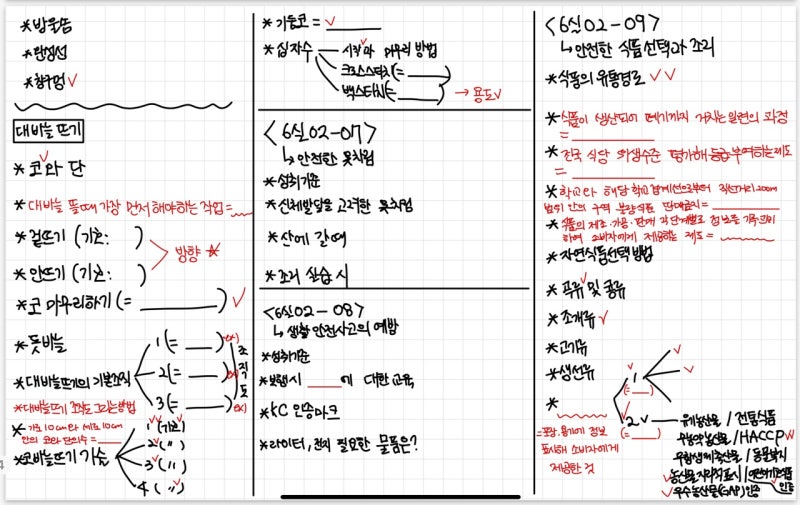 * 방울솜
* 완성선
* 창구멍 ✓
대바늘 뜨기
* 코와 단
* 대바늘 뜰때 가장 먼저 해야하는 작업 =
* 겉뜨기 (기호: )
방향 *
* 안뜨기 (기호: )
* 코 마무리하기 (= ________) ✓
* 돗바늘
* 대바늘뜨기의 기본조직
1 (= ___) ex)
2 (= ___) ex)
3 (= ___) ex)
조직도
* 대바늘뜨기 조직도 그리는방법
* 가로 10cm와 세로 10cm
안의 코와 단의 수 = ____
* 코바늘뜨기 기술
1 (기호)
2 (〃)
3 (〃)
4 (〃)
* 기둥코 = ✓ ______
* 십자수
시작과 마무리 방법
크로스스티치 (= ______)
백스티치 (= ______)
→ 용도 ✓
<6실02-07>
↳ 안전한 옷차림
* 성취기준
* 신체발달을 고려한 옷차림
* 산에 갈때
* 조리 실습 시
<6실02-08>
↳ 생활 안전사고의 예방
* 성취기준
* 보행시 ____에 대한 교육
* KC 인증마크
* 라이터, 전지 필요한 물품은?
<6실02-09>
↳ 안전한 식품선택과 조리
* 식품의 유통경로 ✓✓
* 식품이 생산되어 폐기까지 거치는 일련의 과정
= ________
* 전국 식당 위생수준 평가해 등급 부여하는 제도
= ________
* 학교와 해당 학교 경계선으로부터 직선거리 200m
범위 안의 구역 불량식품 판매금지 = ________
* 식품의 제조·가공·판매 각 단계별로 정보를 기록관리
하여 소비자에게 제공하는 제도 = ________
* 자연식품 선택 방법
* 곡류 및 콩류
* 조개류 ✓
* 고기류
* 생선류
*
1
(= ___)
2 ✓
(= ___)
= 포장·용기에 정보
표시해 소비자에게
제공한 것
유기농산물 / 전통식품
무농약농산물 / HACCP ✓
무항생제축산물 / 동물복지
농산물 지리적표시 /
인증
✓ 우수농산물(GAP)인증